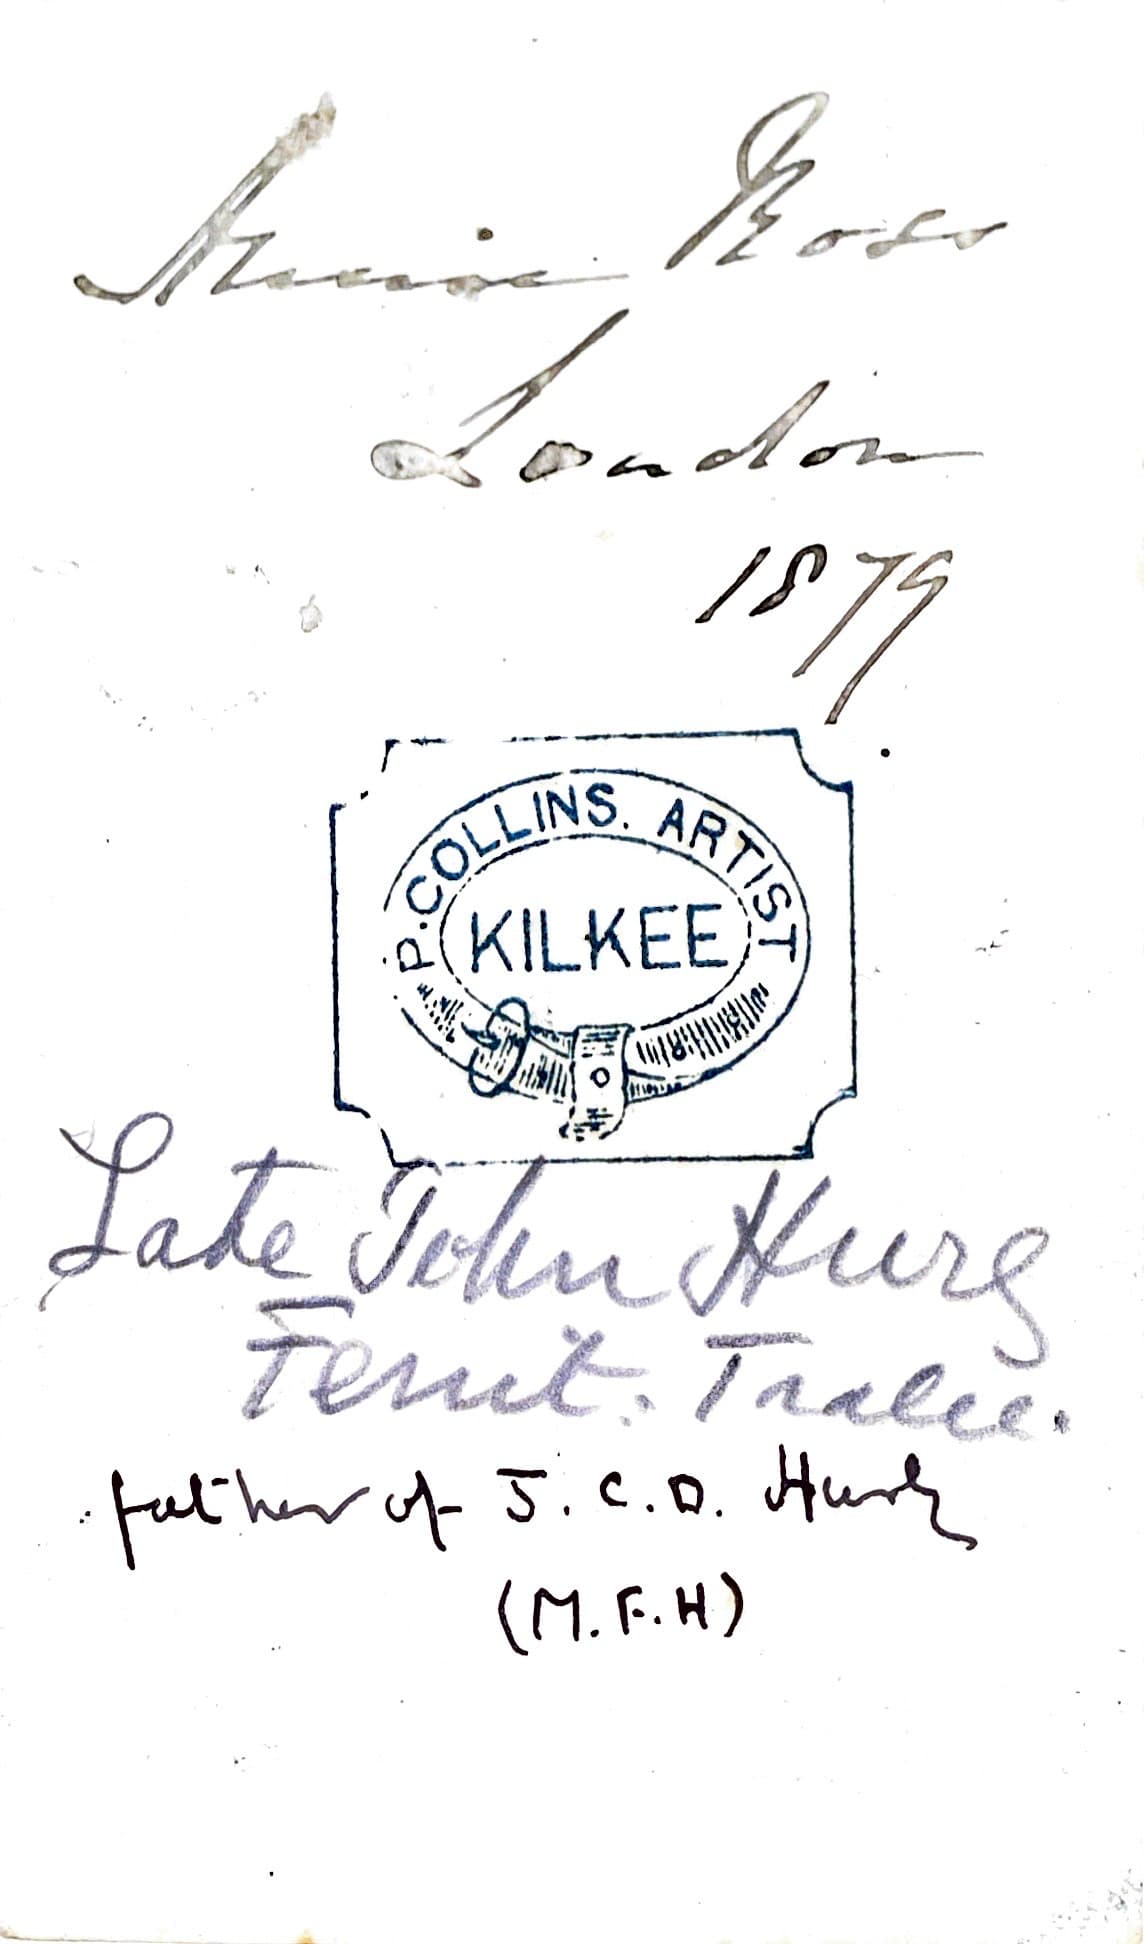 Annie Ross
London
1879
P. COLLINS. ARTIST
KILKEE
Late John Hurly
Fenit. Tralee.
father of J. C. D. Hurly
(M.F.H)